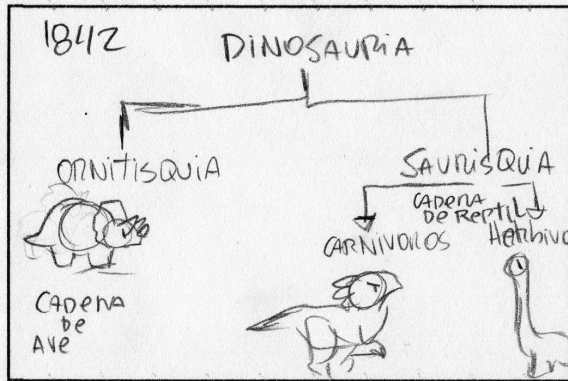 1842
DINOSAURIA
ORNITISQUIA
SAURISQUIA
CADENA
DE REPTIL
CARNIVOROS
HERBIVO
CADENA
DE
AVE